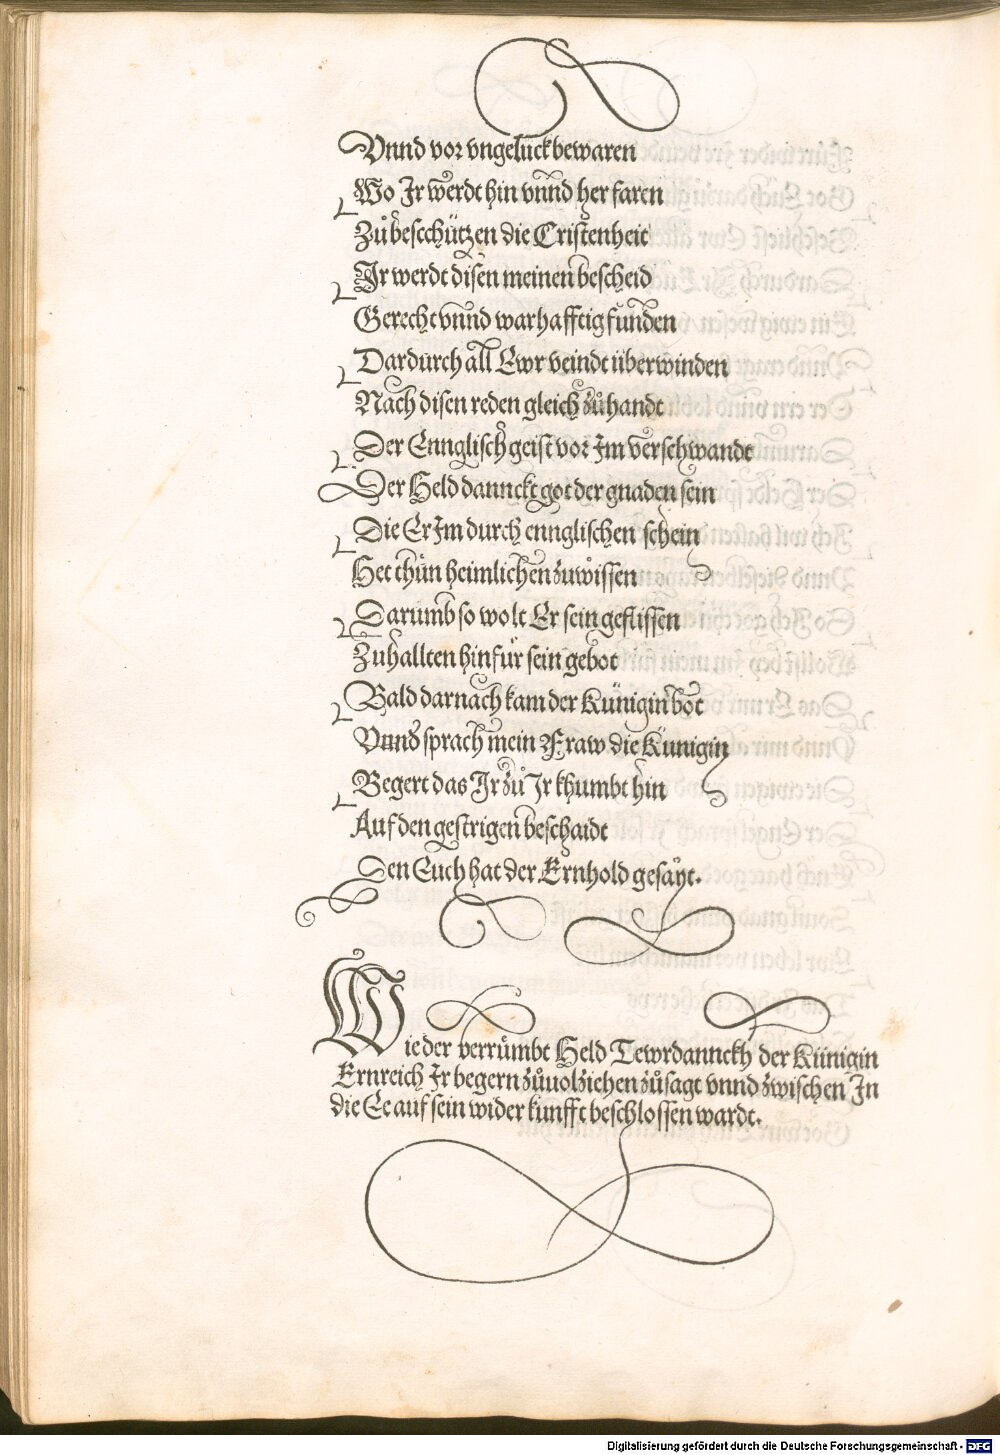 Vnnd vor vngelück bewaren
Wo Ir werdt hin vnnd her faren
Zů bescchützen die Cristenheit
Ir werdt disen meinen bescheid
Gerecht vnnd warhafftig funden
Dardurch all Ewr veindt überwinden
Nach disen reden gleich zůhandt
Der Ennglisch geist vor Im verschwandt
Der Held dannckt got der gnaden sein
Die Er Im durch ennglischen schein
Het thůn heimlichen zuwissen
Darumb so wolt Er sein geflissen
Zuhallten hinfür sein gebot
Bald darnach kam der Künigin bot
Vnnd sprach mein Fraw die Kunigin
Begert das Ir zů Ir khumbt hin
Auf den gestrigen beschaidt
Den Euch hat der Ernhold gesayt.
Wie der verrümbt Held Tewrdannckh der Künigin
Ernreich Ir begern zůuolziehen zůsagt vnnd zwischen In
die Ee auf sein wider kunfft beschlossen wardt.
Digitalisierung gefördert durch die Deutsche Forschungsgemeinschaft - DFG